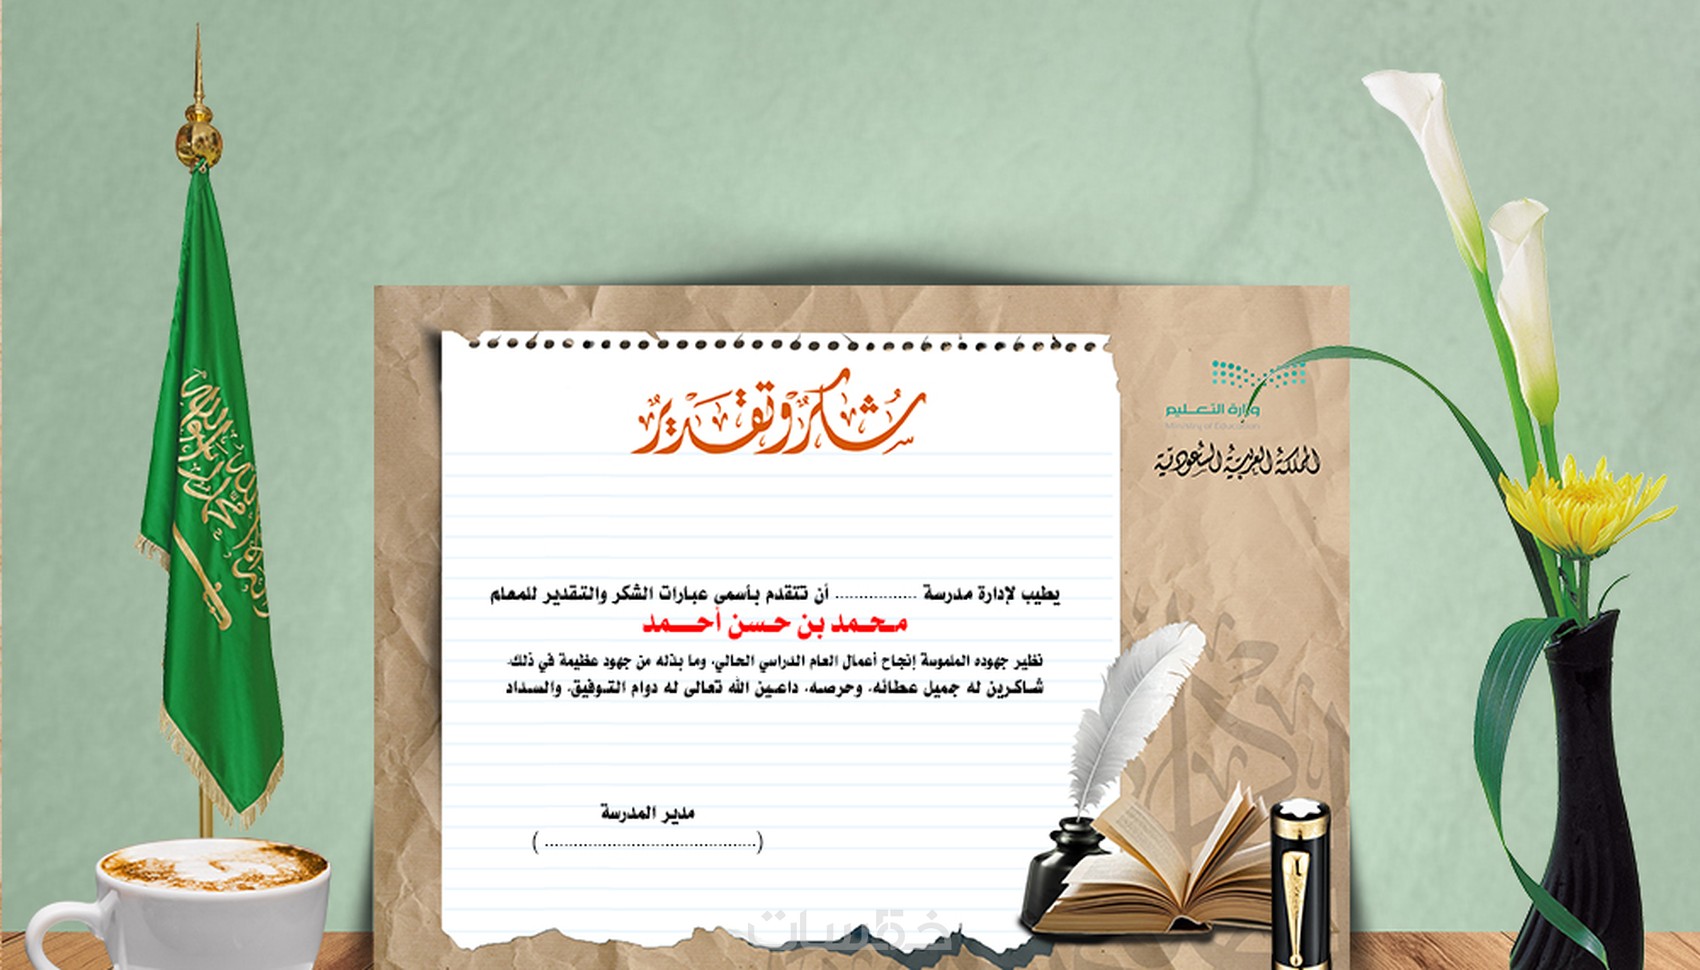 شكر وتقدير
وزارة التعليم
Ministry of Education
المملكة العربية السعودية
يطيب لإدارة مدرسة ................ أن تتقدم بأسمى عبارات الشكر والتقدير للمعلم
محمد بن حسن أحمد
نظير جهوده الملموسة إنجاح أعمال العام الدراسي الحالي، وما بذله من جهود عظيمة في ذلك،
شاكرين له جميل عطائه، وحرصه، داعين الله تعالى له دوام التوفيق، والسداد
مدير المدرسة
(..........................................)
خمسات